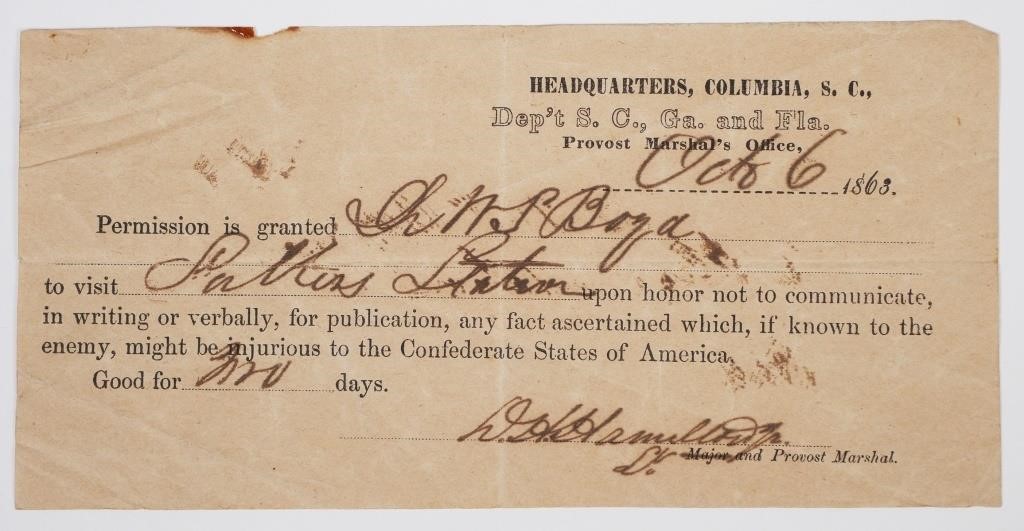 HEADQUARTERS, COLUMBIA, S. C.,
Dep't S. C., Ga. and Fla.
Provost Marshal's Office,
Oct 6 1863.
Permission is granted Dr W S Boyd
to visit Station upon honor not to communicate,
in writing or verbally, for publication, any fact ascertained which, if known to the
enemy, might be injurious to the Confederate States of America.
Good for Two days.
D. H. Hamilton Jr.
Lt. Major and Provost Marshal.